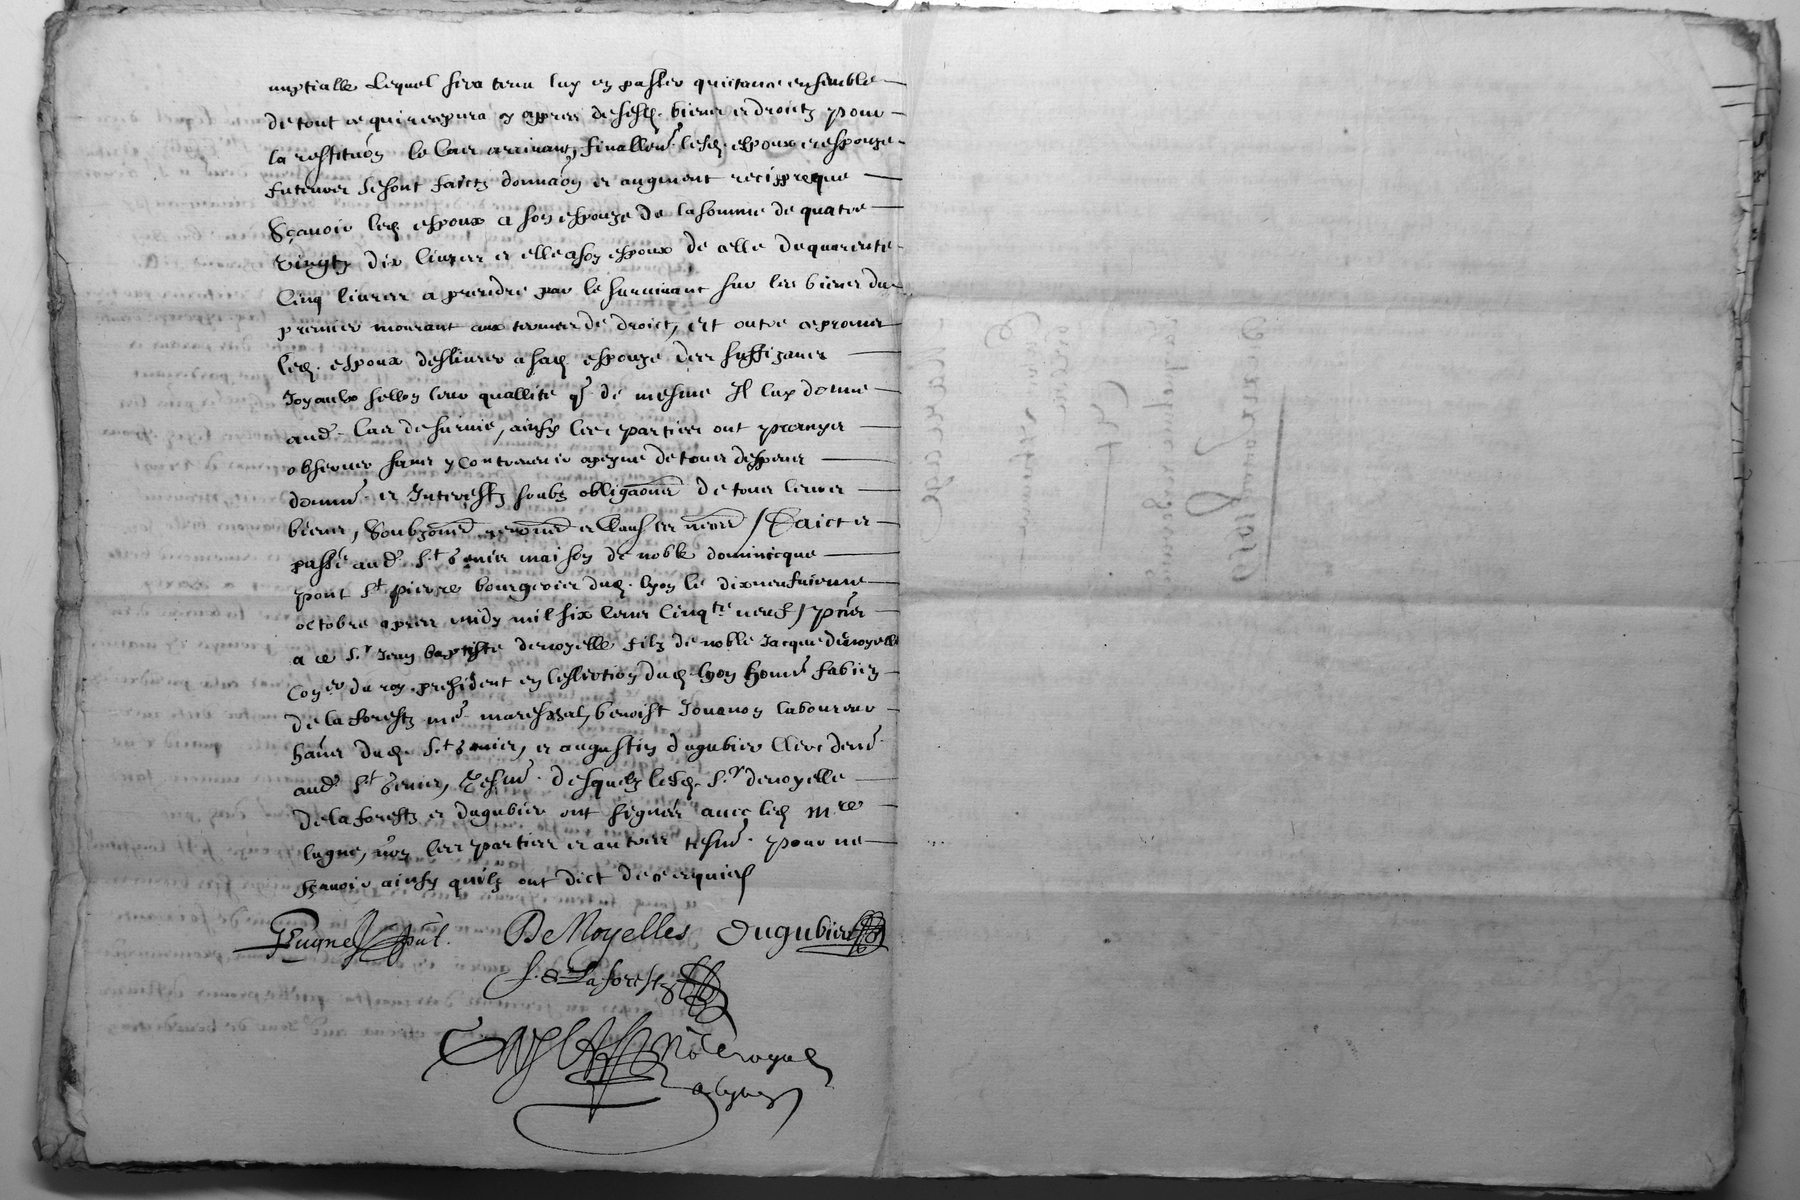 nuptialle Lequel sera tenu luy en passer quictance ensemble
de tout ce quil recepvra cy appres de sesd. biens et droictz pour
la restitution le cas arrivant, finallemt. lesd. espoux et espouze
futeures se sont faictz donnaon et augment reciproque
Sçavoir led espoux a son espouze de la somme de quatre
vingtz dix livres et elle a son espoux de celle de quarente
Cinq livres a prendre par le survivant sur les biens du
premier mourant aux termes de droict, et outre ce promet
led. espoux deslivrer a sad espouze des suffizans
Joyaulx sellon leur quallité qt de mesme Il luy donne
aud. cas de survie, ainsy lesd parties ont promys
observer sans y contrevenir a peyne de tous despens
domm. et Interestz soubz obligaons de tous leurs
biens, Soubzons renons et clauses necess / Faict et
passé aud. St. Genis maison de noble dominicque
pont St pierre bourgeois dud. lyon le dixneufviesme
octobre apres midy mil six cens cinqte neuf / pns
a ce Sr. Jean baptiste denoyelle filz de noble Jacque denoyelle
Coner du roy president en leslection dud. lyon honn. fabien
de la forestz me. mareschal, benoist Jouanon laboureur
hans dud. St. Genis, et augustin dugubier clerc dem.
aud. St Genis, Tesm. desquelz lesd. Sr. denoyelle
de la forestz et dugubier ont signés avec led mre
lugne, non les parties et autres tesm. pour ne
sçavoir ainsy quilz ont dict de ce enquis
De Noyelles Dugubier
f. de Laforestz
Nore royal